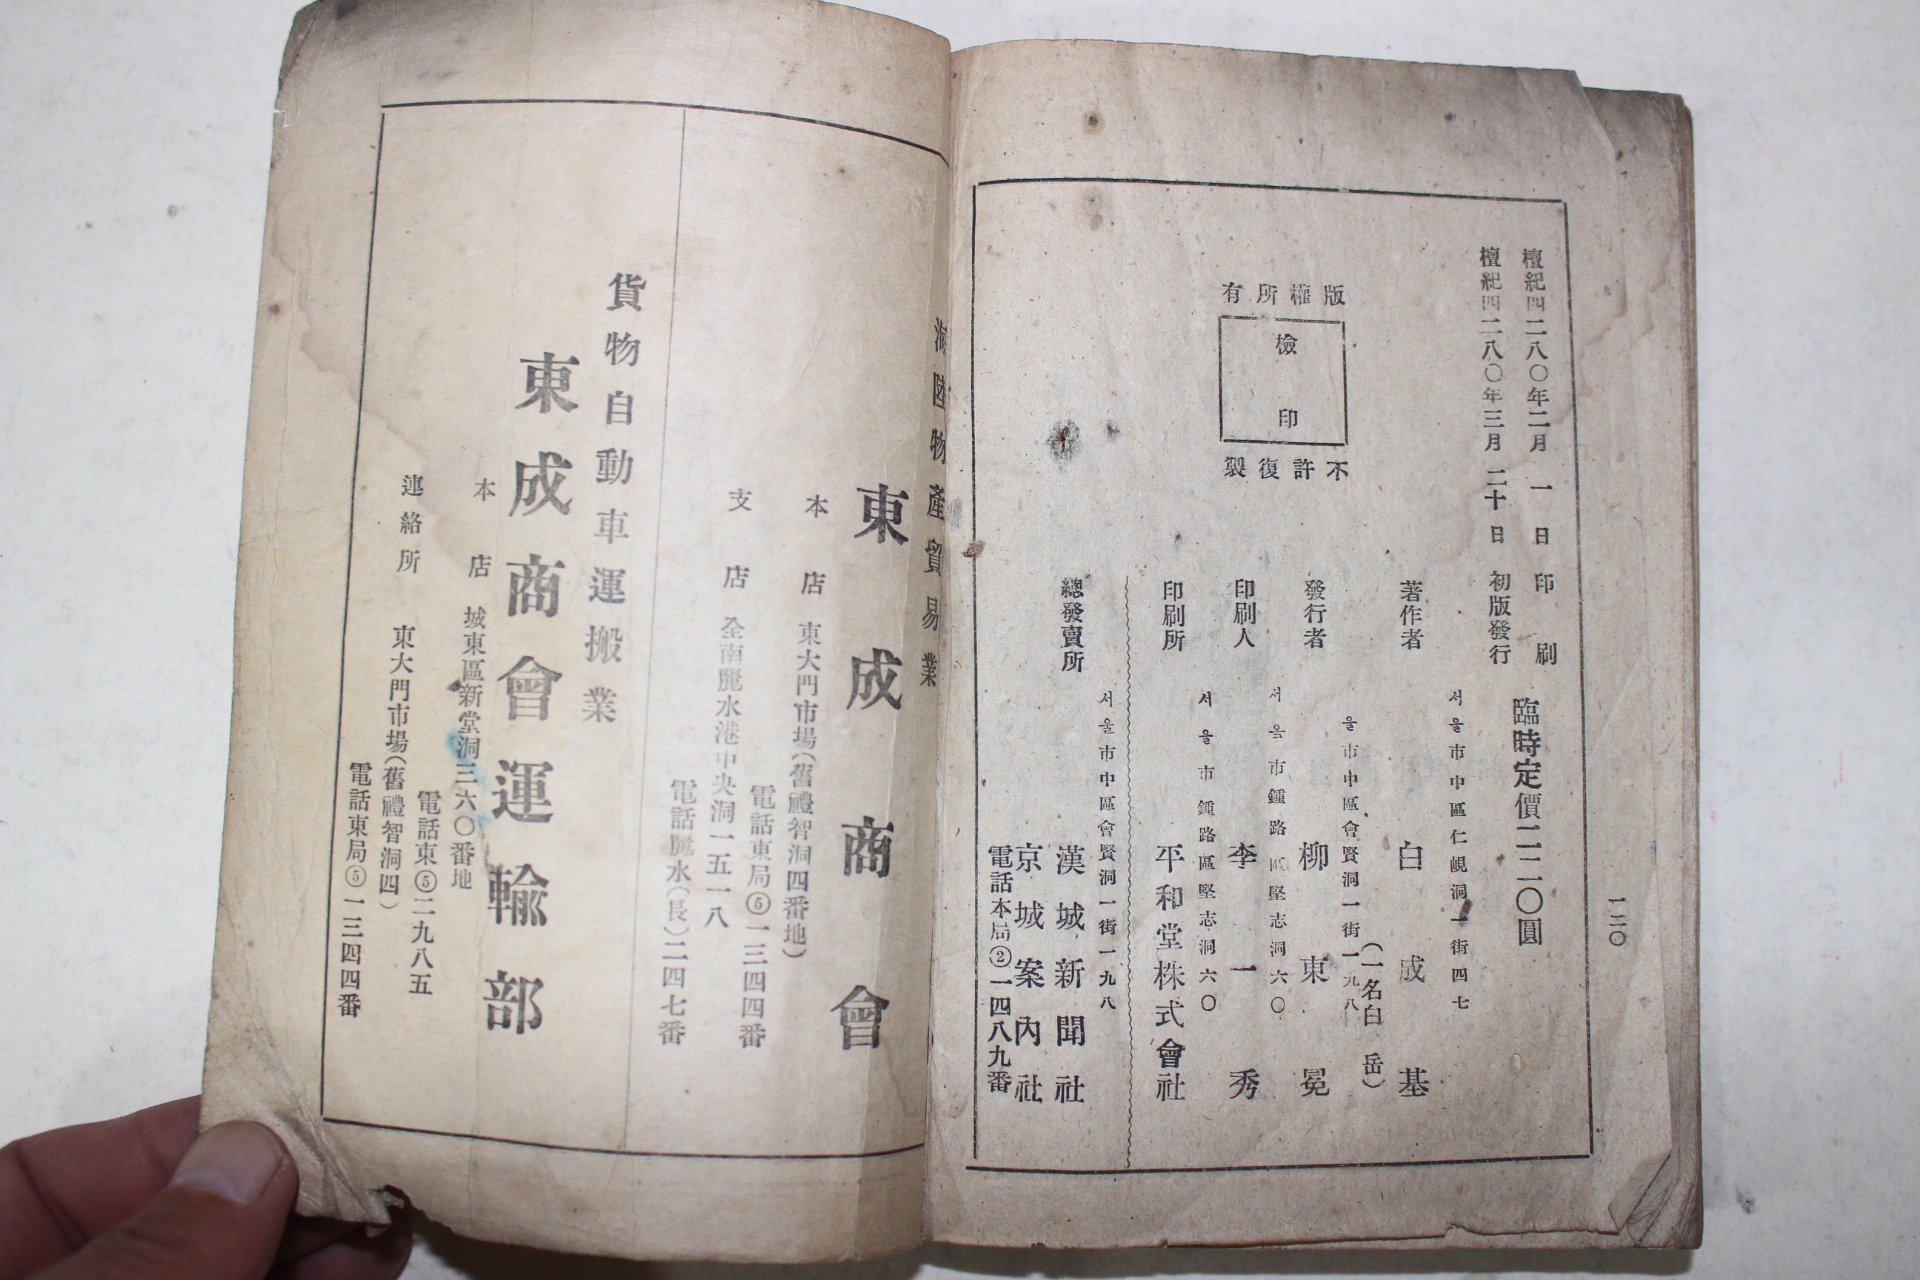 一二〇
檀紀四二八〇年二月 一 日 印 刷
檀紀四二八〇年三月 二十 日 初版發行
臨時定價二二〇圓
版權所有
檢印
不許復製
서울市中區仁峴洞一街四七
著作者 白成基
(一名白岳)
울市中區會賢洞一街一九八
發行者 柳東冕
서울市鍾路區堅志洞六〇
印刷人 李一秀
서울市鍾路區堅志洞六〇
印刷所 平和堂株式會社
서울市中區會賢洞一街一九八
總發賣所 漢城新聞社
京城案內社
電話本局②一四八九番
海陸物產貿易業
東成商會
本店 東大門市場(舊禮智洞四番地)
電話東局⑤一三四四番
支店 全南麗水港中央洞一五一八
電話麗水(長)二四七番
貨物自動車運搬業
東成商會運輸部
本店 城東區新堂洞三六〇番地
電話東⑤二九八五
連絡所 東大門市場(舊禮智洞四)
電話東局⑤一三四四番